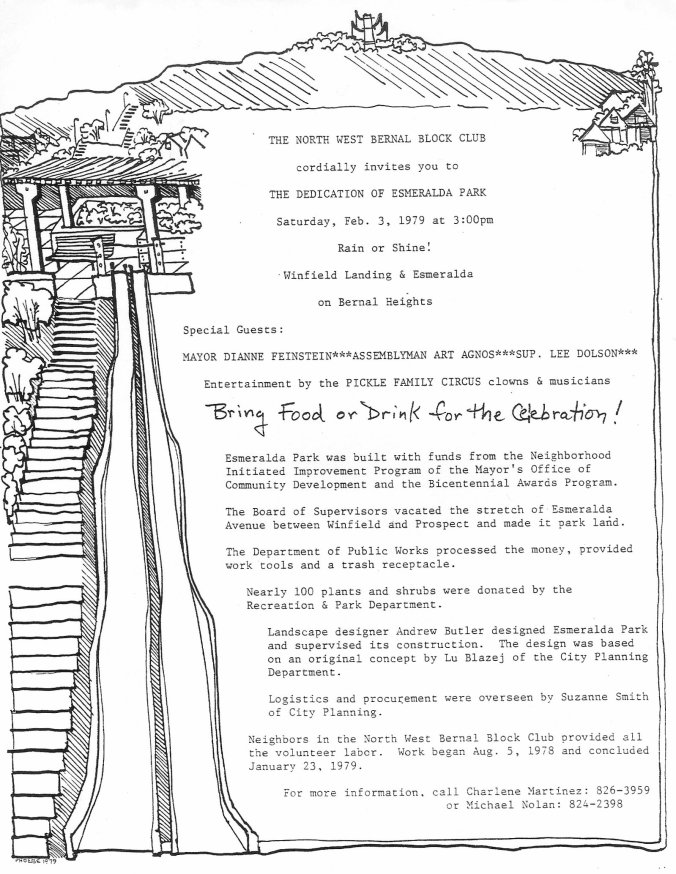 THE NORTH WEST BERNAL BLOCK CLUB
cordially invites you to
THE DEDICATION OF ESMERALDA PARK
Saturday, Feb. 3, 1979 at 3:00pm
Rain or Shine!
Winfield Landing & Esmeralda
on Bernal Heights
Special Guests:
MAYOR DIANNE FEINSTEIN***ASSEMBLYMAN ART AGNOS***SUP. LEE DOLSON***
Entertainment by the PICKLE FAMILY CIRCUS clowns & musicians
Bring Food or Drink for the Celebration!
Esmeralda Park was built with funds from the Neighborhood
Initiated Improvement Program of the Mayor's Office of
Community Development and the Bicentennial Awards Program.
The Board of Supervisors vacated the stretch of Esmeralda
Avenue between Winfield and Prospect and made it park land.
The Department of Public Works processed the money, provided
work tools and a trash receptacle.
Nearly 100 plants and shrubs were donated by the
Recreation & Park Department.
Landscape designer Andrew Butler designed Esmeralda Park
and supervised its construction. The design was based
on an original concept by Lu Blazej of the City Planning
Department.
Logistics and procurement were overseen by Suzanne Smith
of City Planning.
Neighbors in the North West Bernal Block Club provided all
the volunteer labor. Work began Aug. 5, 1978 and concluded
January 23, 1979.
For more information, call Charlene Martinez: 826-3959
or Michael Nolan: 824-2398
PHOEBE 1979